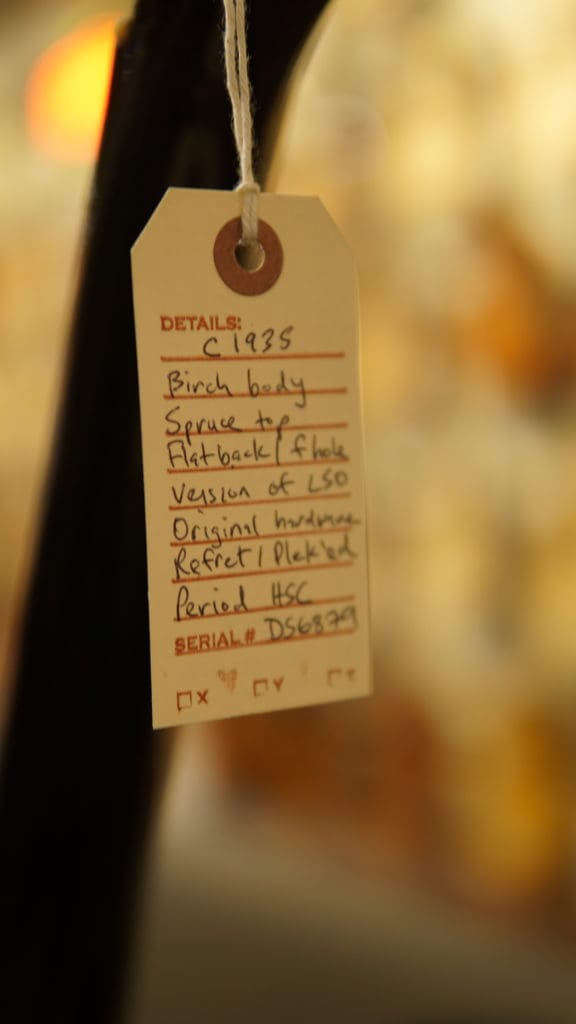 DETAILS:
C 1935
Birch body
Spruce top
Flatback / f hole
Version of L50
Original hardware
Refret / Plek'ed
Period HSC
SERIAL# DS6879
X Y